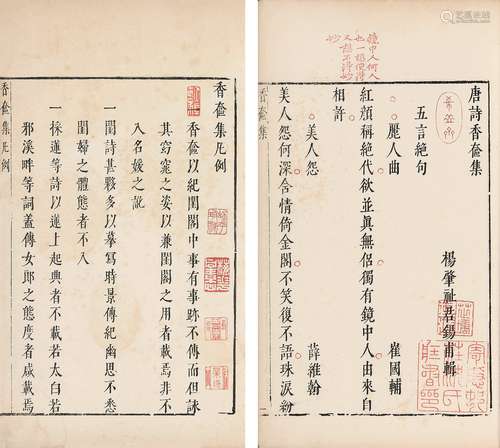 唐詩香奩集
楊肇祉君錫甫輯
五言絕句
麗人曲 崔國輔
紅顏稱絕代欲並眞無侶獨有鏡中人由來自
相許
美人怨 薛維翰
美人怨何深含情倚金閣不笑復不語珠淚紛
香奩集
鏡中人何人
香奩集凡例
香奩以紀閨閣中事有事跡不傳而但詠
其窈窕之姿以兼閨閣之美者載焉非不
入名媛之訿
一閨詩甚夥多以摹寫時景傳紀幽思不悉
閨婦之體態者不入
一採蓮等詩以蓮上起興者不載若太白若
邪溪畔等詞蓋傳女郎之態度者咸載焉
香奩集凡例